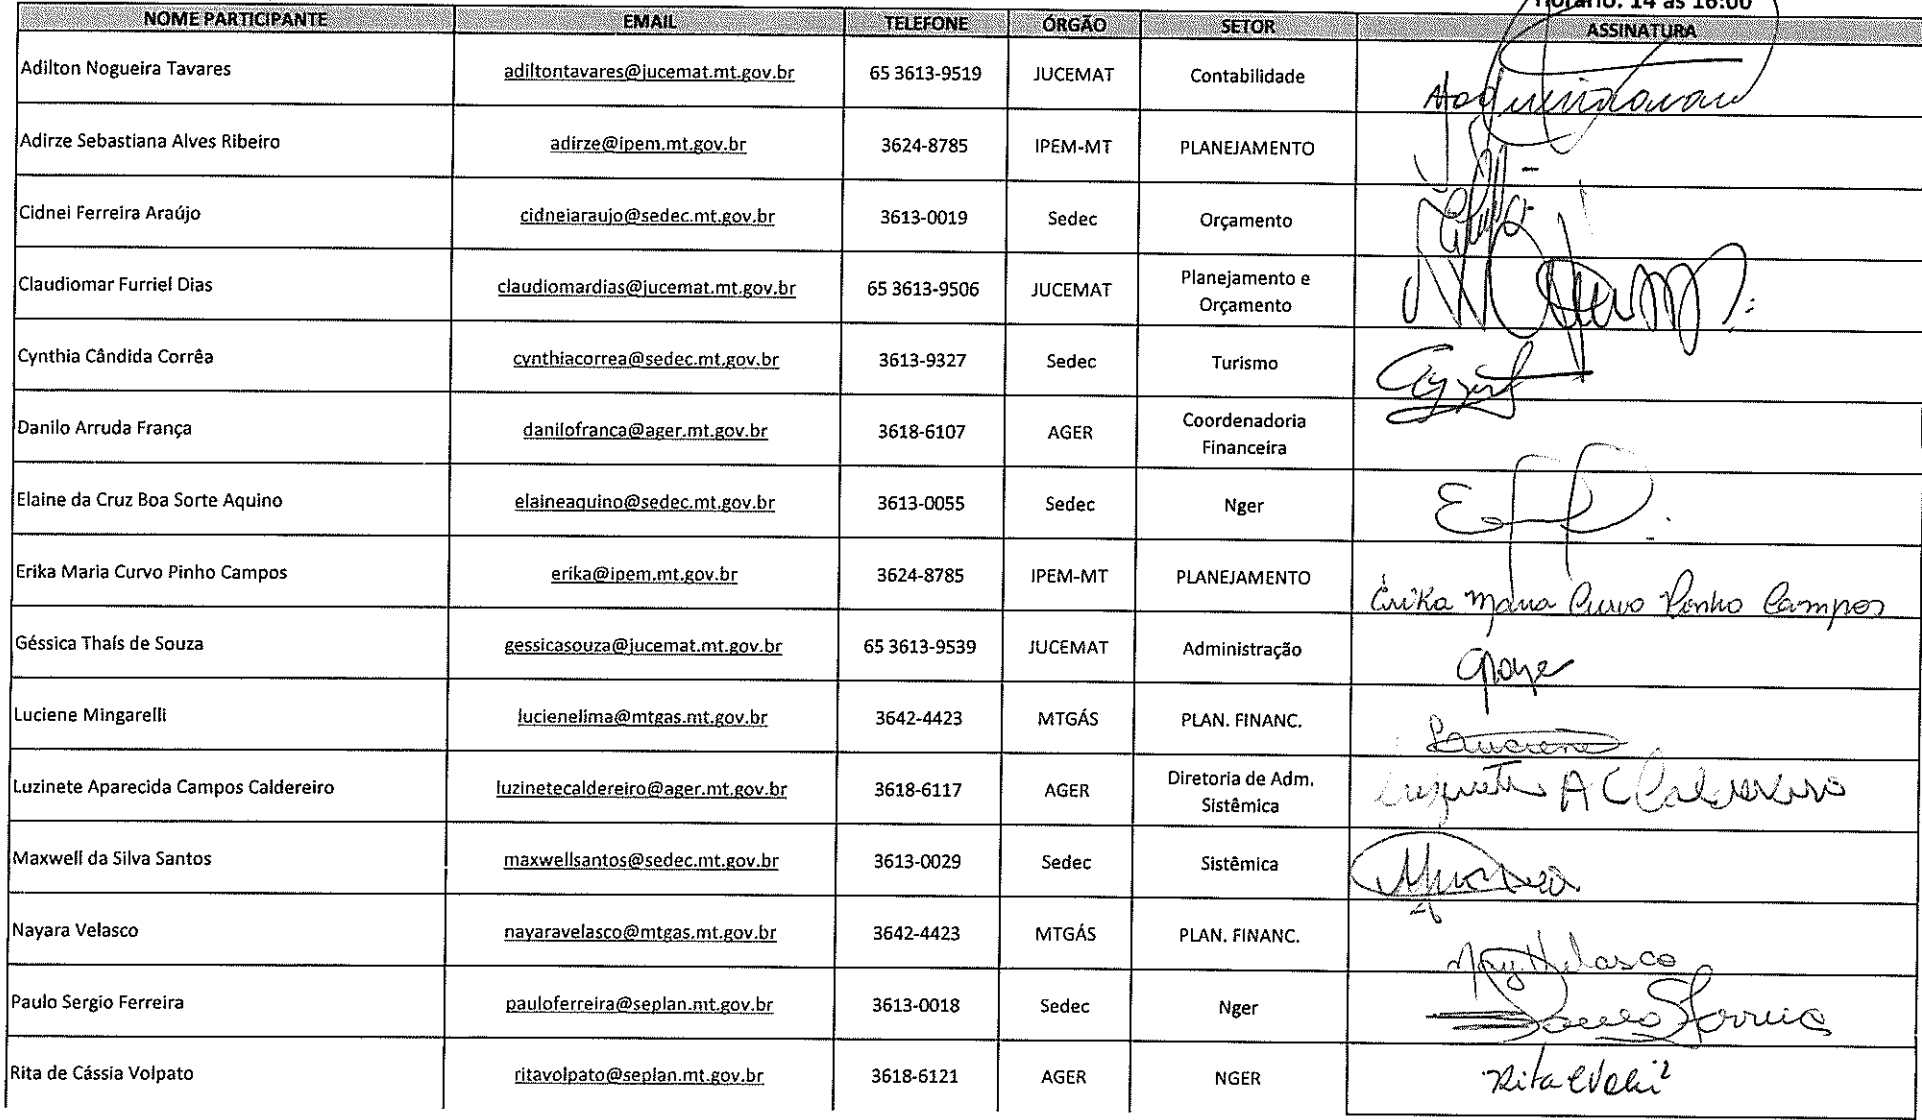 Horário: 14 às 16:00
NOME PARTICIPANTE EMAIL TELEFONE ÓRGÃO SETOR ASSINATURA
Adilton Nogueira Tavares adiltontavares@jucemat.mt.gov.br 65 3613-9519 JUCEMAT Contabilidade
Adirze Sebastiana Alves Ribeiro adirze@ipem.mt.gov.br 3624-8785 IPEM-MT PLANEJAMENTO
Cidnei Ferreira Araújo cidneiaraujo@sedec.mt.gov.br 3613-0019 Sedec Orçamento
Claudiomar Furriel Dias claudiomardias@jucemat.mt.gov.br 65 3613-9506 JUCEMAT Planejamento e
Orçamento
Cynthia Cândida Corrêa cynthiacorrea@sedec.mt.gov.br 3613-9327 Sedec Turismo
Danilo Arruda França danilofranca@ager.mt.gov.br 3618-6107 AGER Coordenadoria
Financeira
Elaine da Cruz Boa Sorte Aquino elaineaquino@sedec.mt.gov.br 3613-0055 Sedec Nger
Erika Maria Curvo Pinho Campos erika@ipem.mt.gov.br 3624-8785 IPEM-MT PLANEJAMENTO Érika Maria Curvo Pinho Campos
Géssica Thaís de Souza gessicasouza@jucemat.mt.gov.br 65 3613-9539 JUCEMAT Administração
Luciene Mingarelli lucienelima@mtgas.mt.gov.br 3642-4423 MTGÁS PLAN. FINANC. Luciene
Luzinete Aparecida Campos Caldereiro luzinetecaldereiro@ager.mt.gov.br 3618-6117 AGER Diretoria de Adm.
Sistêmica Luzinete A C Caldereiro
Maxwell da Silva Santos maxwellsantos@sedec.mt.gov.br 3613-0029 Sedec Sistêmica
Nayara Velasco nayaravelasco@mtgas.mt.gov.br 3642-4423 MTGÁS PLAN. FINANC. Nay Velasco
Paulo Sergio Ferreira pauloferreira@seplan.mt.gov.br 3613-0018 Sedec Nger Paulo S Ferreira
Rita de Cássia Volpato ritavolpato@seplan.mt.gov.br 3618-6121 AGER NGER Rita